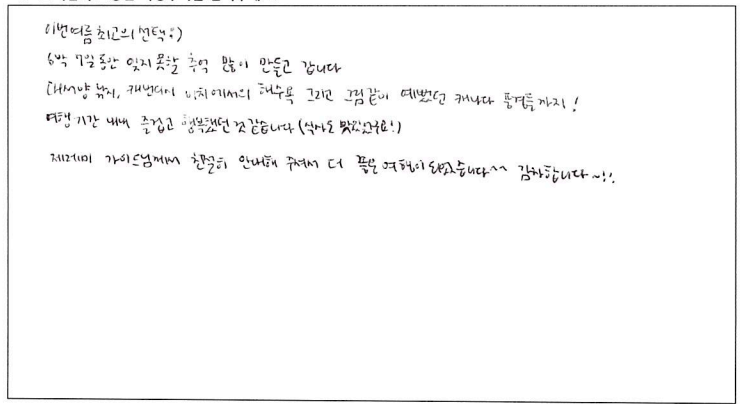 이번여름 최고의 (선택!)
6박 7일동안 잊지 못할 추억 많이 만들고 갑니다
대서양 낚시, 캐번디시 비치에서의 해수욕 그리고 그림같이 예뻤던 캐나다 풍경들까지!
여행기간 내내 즐겁고 행복했던 것같습니다 (식사도 맛있었구요!)
제레미 가이드님께서 친절히 안내해 주셔서 더 좋은 여행이 되었습니다^^ 감사합니다~!!